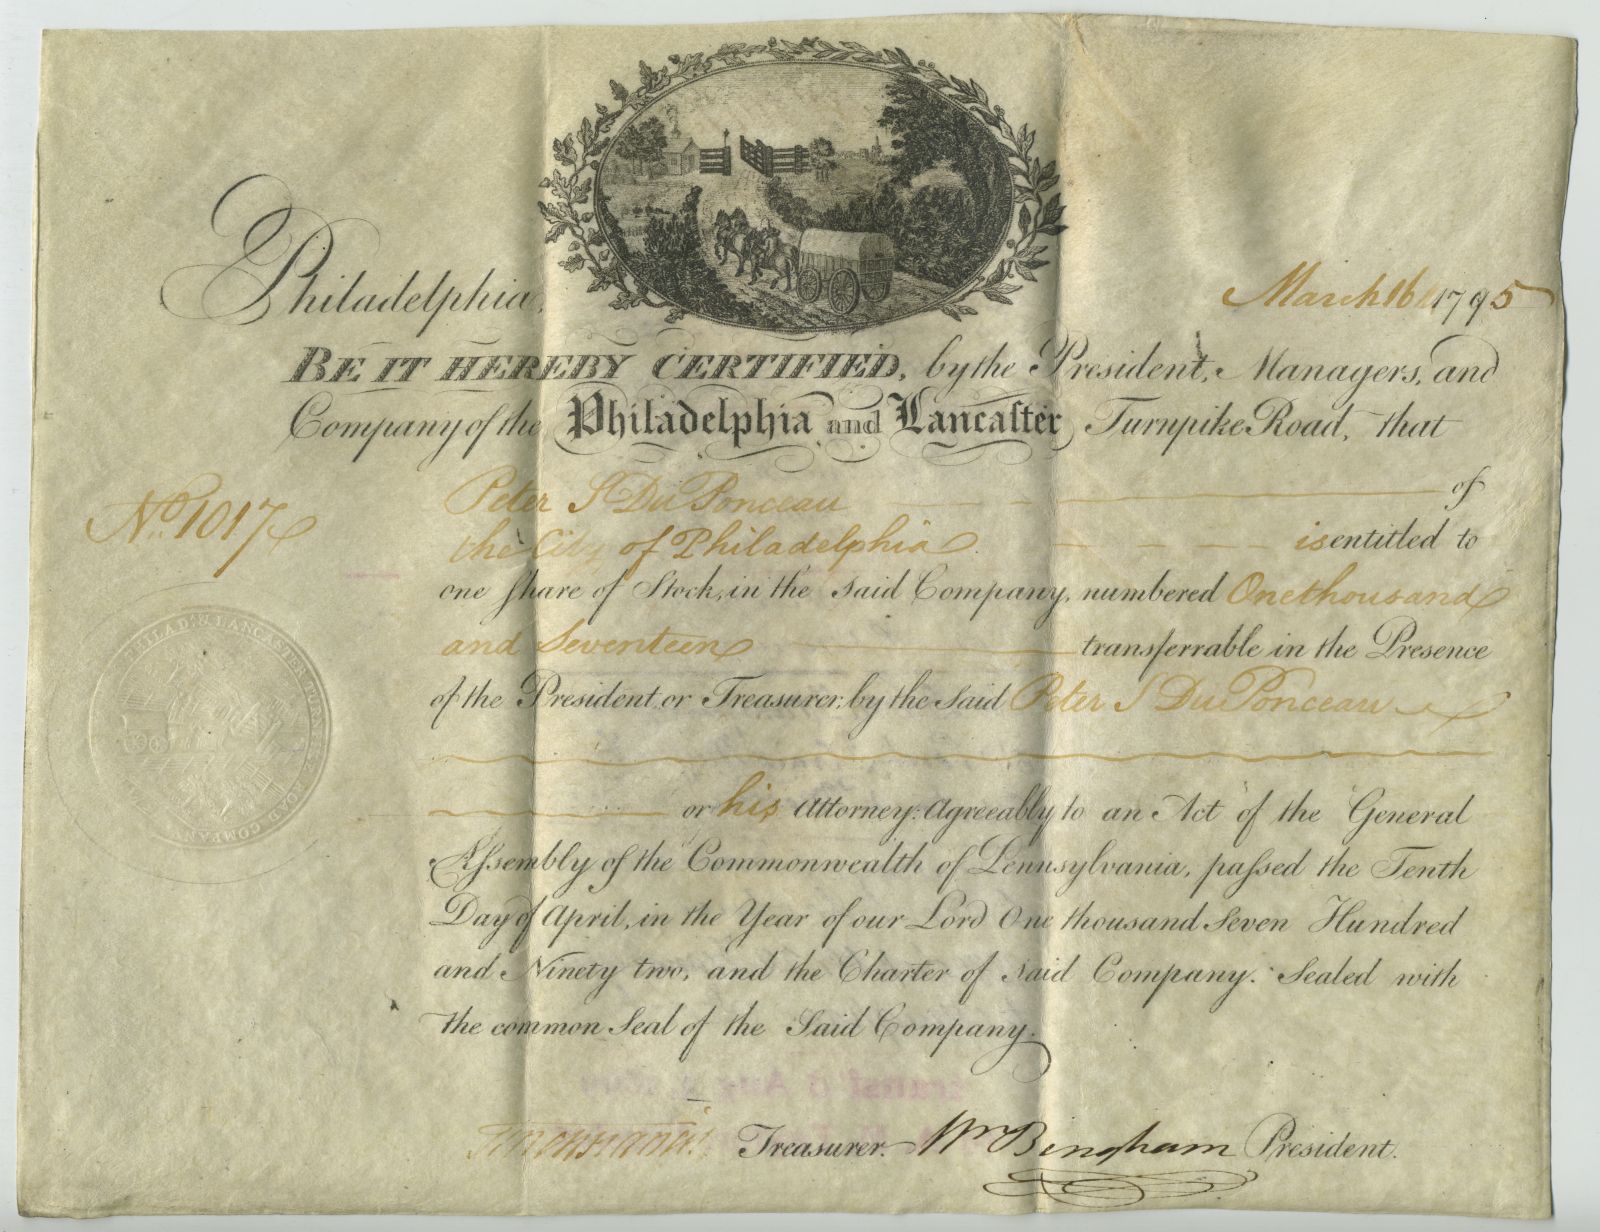 Philadelphia, March 16th 1795
BE IT HEREBY CERTIFIED, by the President, Managers, and
Company of the Philadelphia and Lancaſter Turnpike Road, that
No. 1017 Peter S Du Ponceau of
the City of Philadelphia is entitled to
one ſhare of Stock, in the said Company, numbered One thousand
and Seventeen transferrable in the Presence
of the President or Treasurer, by the Said Peter S Du Ponceau
or his Attorney: Agreeably to an Act of the General
Aſsembly of the Commonwealth of Pennsylvania, paſsed the Tenth
Day of April, in the Year of our Lord One thousand Seven Hundred
and Ninety two, and the Charter of said Company. Sealed with
the common Seal of the Said Company.
PHILADA & LANCASTER TURNPIKE ROAD COMPANY
Treasurer. Wm Bingham President.